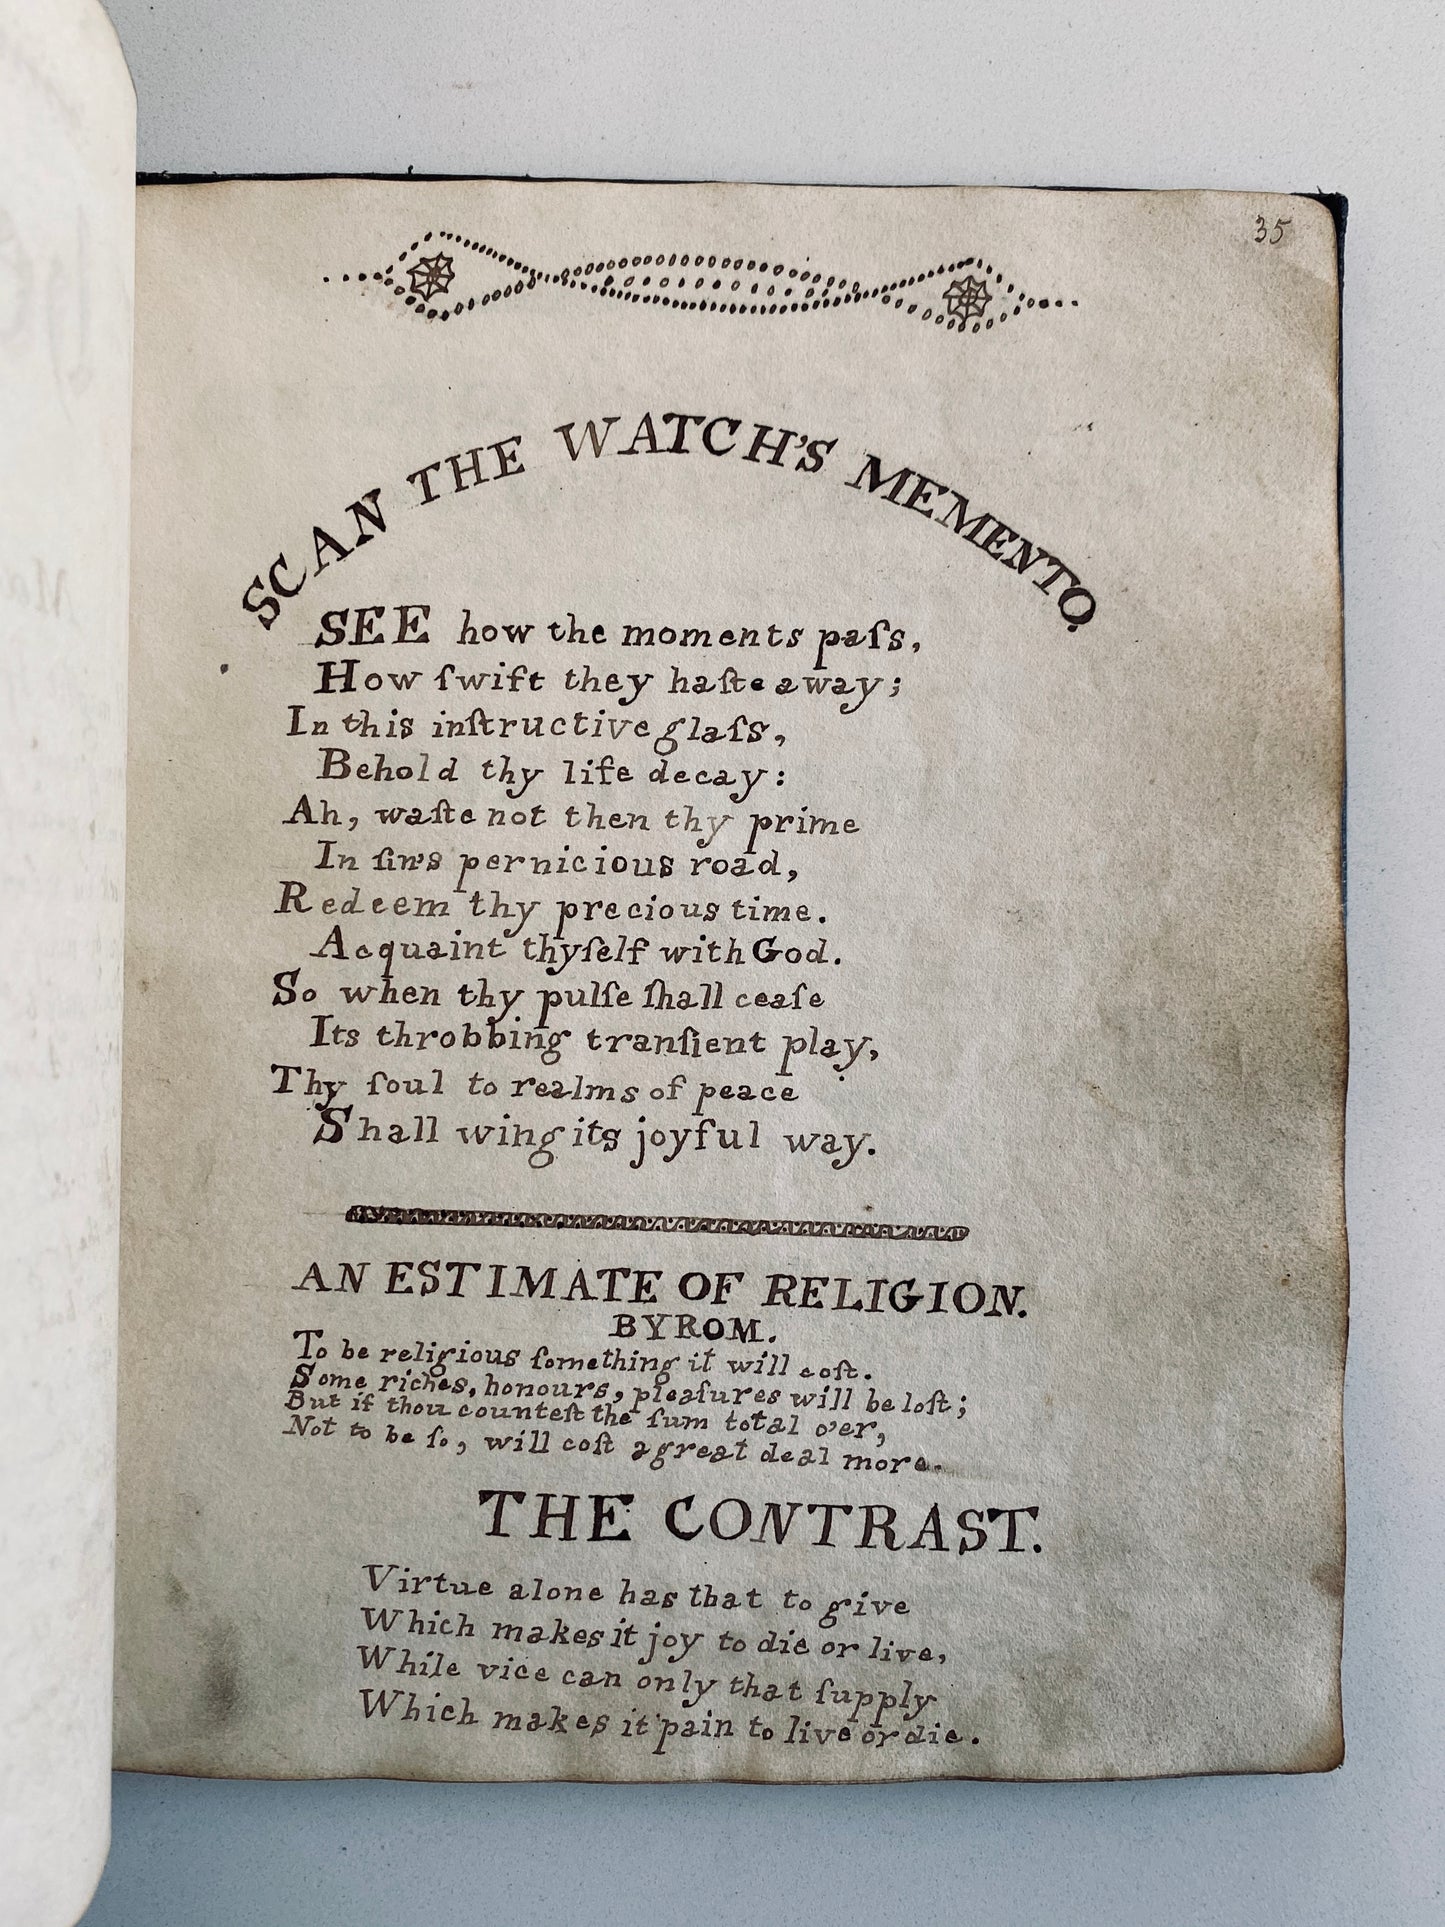 35
SCAN THE WATCH'S MEMENTO.
SEE how the moments paſs,
How ſwift they haſte away;
In this inſtructive glaſs,
Behold thy life decay:
Ah, waſte not then thy prime
In ſin's pernicious road,
Redeem thy precious time.
Acquaint thyſelf with God.
So when thy pulſe ſhall ceaſe
Its throbbing tranſient play,
Thy ſoul to realms of peace
Shall wing its joyful way.
AN ESTIMATE OF RELIGION.
BYROM.
To be religious ſomething it will coſt.
Some riches, honours, pleaſures will be loſt;
But if thou counteſt the ſum total o'er,
Not to be ſo, will coſt a great deal more.
THE CONTRAST.
Virtue alone has that to give
Which makes it joy to die or live,
While vice can only that ſupply
Which makes it pain to live or die.